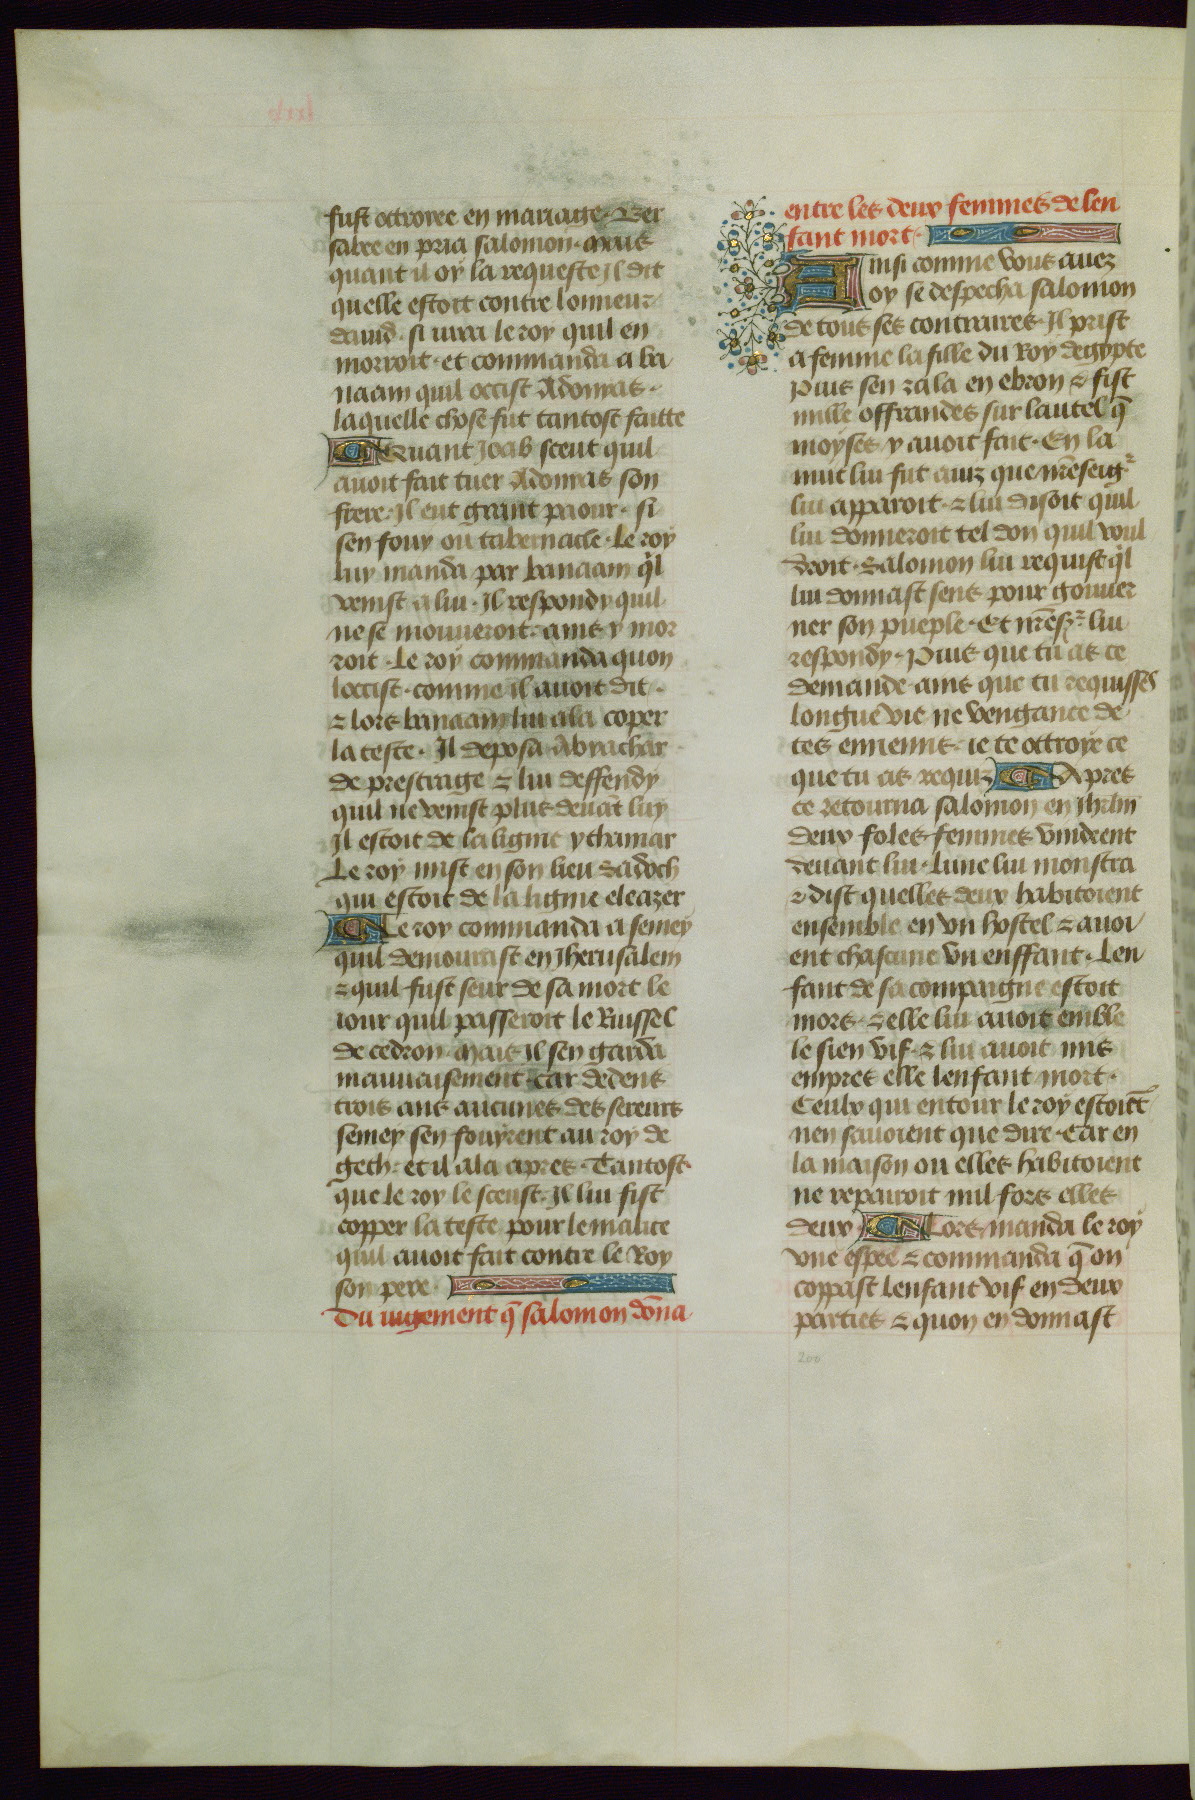 fust octroyee en mariage. Ber
sabee en pria salomon. Mais
quant il oy la requeste Il dit
quelle estoit contre lonneur
dauid. si iura le roy quil en
morroit. et commanda a ba
naam quil occist Adonias.
laquelle chose fut tantost faitte
Quant Joab sceut quil
auoit fait tuer Adonias son
frere. Il eut grant paour. si
sen fouy ou tabernacle. Le roy
luy manda par banaam ql
venist a lui. Il respondy quil
ne se mouueroit. ains y mor
roit. Le roy commanda quon
loccist. comme il auoit dit.
⁊ lors banaam lui ala coper
la teste. Il deposa Abyachar
de prestrage ⁊ lui deffendy
quil ne venist plus deuāt luy
Il estoit de la lignie ythamar
Le roy mist en son lieu Sadoch
qui estoit de la lignie eleazer
Le roy commanda a semey
quil demourast en Jherusalem
⁊ quil fust seur de sa mort le
iour quil passeroit le Ruissel
de cedron. Mais Il sen garda
mauuaisement. Car dedens
trois ans aucunes des sereurs
semey sen fouyrent au roy de
geth. et il ala apres. Tantost
que le roy le sceust. Il lui fist
copper la teste pour le malice
quil auoit fait contre le Roy
son pere
Du iugement q̄ salomon dōna
entre les deux femmes de len
fant mort.
Ainsi comme vous auez
oy se despecha salomon
de tous ses contraires. Il prist
a femme la fille du Roy degypte
Puis sen rala en ebron ⁊ fist
mille offrandes sur lautel q̄
moyses y auoit fait. En la
nuit lui fut auiz que nr̄eseigr
lui apparoit. ⁊ lui disoit quil
lui donneroit tel don quil voul
droit. Salomon lui requist ql
lui donnast sens pour gouuer
ner son pueple. Et nr̄esr lui
respondy. Puis que tu as ce
demande ains que tu requisses
longue vie ne vengance de
tes ennemis. ie te ottroye ce
que tu as requiz Apres
ce retourna salomon en Jhrlm̄
deux foles femmes vindrent
deuant lui. Lune lui monstra
⁊ dist quelles deux habitoient
ensemble en vn hostel ⁊ auoi
ent chascune vn enffant. Len
fant de sa compaigne estoit
mors. ⁊ elle lui auoit emble
le sien vif. ⁊ lui auoit mis
empres elle lenfant mort.
Ceulx qui entour le roy estoiēt
nen sauoient que dire. Car en
la maison ou elles habitoient
ne repairoit nul fors elles
deux Lors manda le roy
vne espee ⁊ commanda q̄ on
coppast lenfant vif en deux
parties ⁊ quon en donnast
200